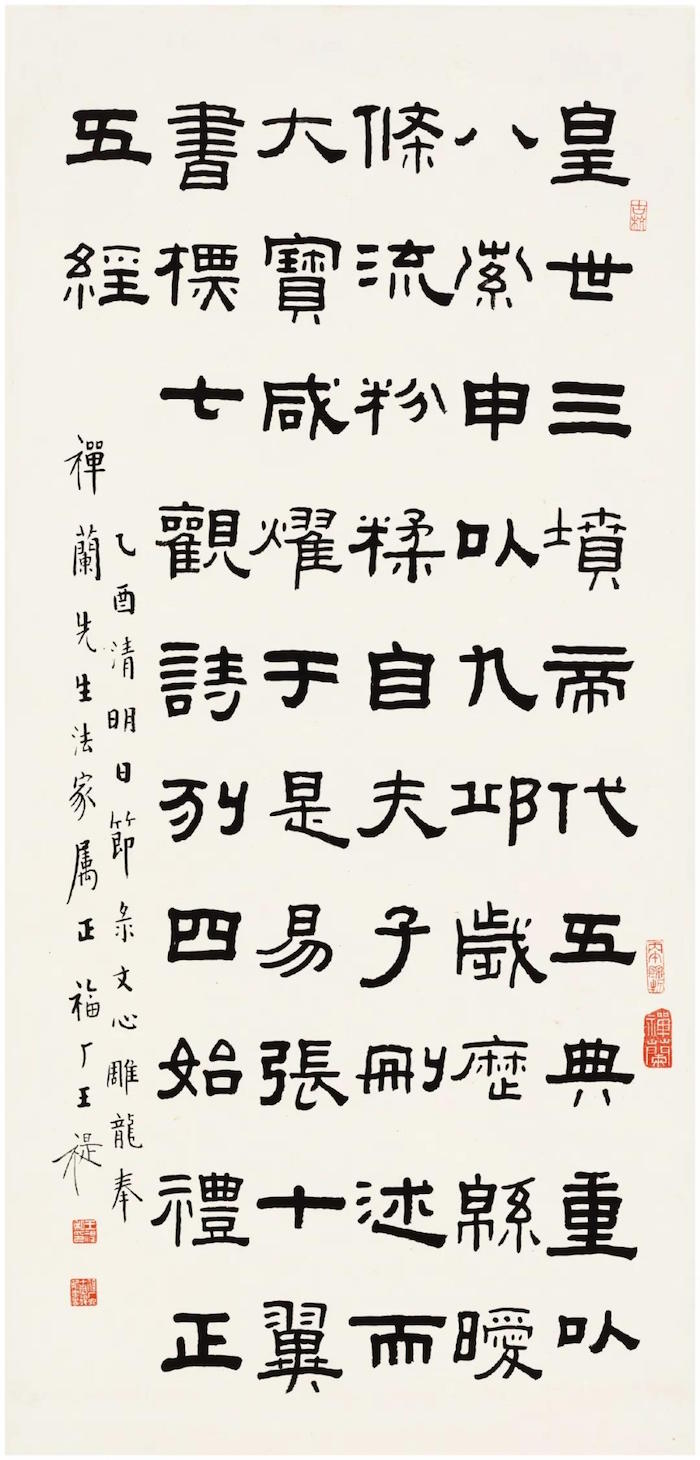 皇世三墳帝代五典重㠯
八索申㠯九邱歲歷緜曖
條流粉糅自夫子刪述而
大寶咸燿于是易張十翼
書標七觀詩列四始禮正
五經
乙酉清明日節彔文心雕龍奉
禪蘭先生法家属正福厂王禔
禪蘭